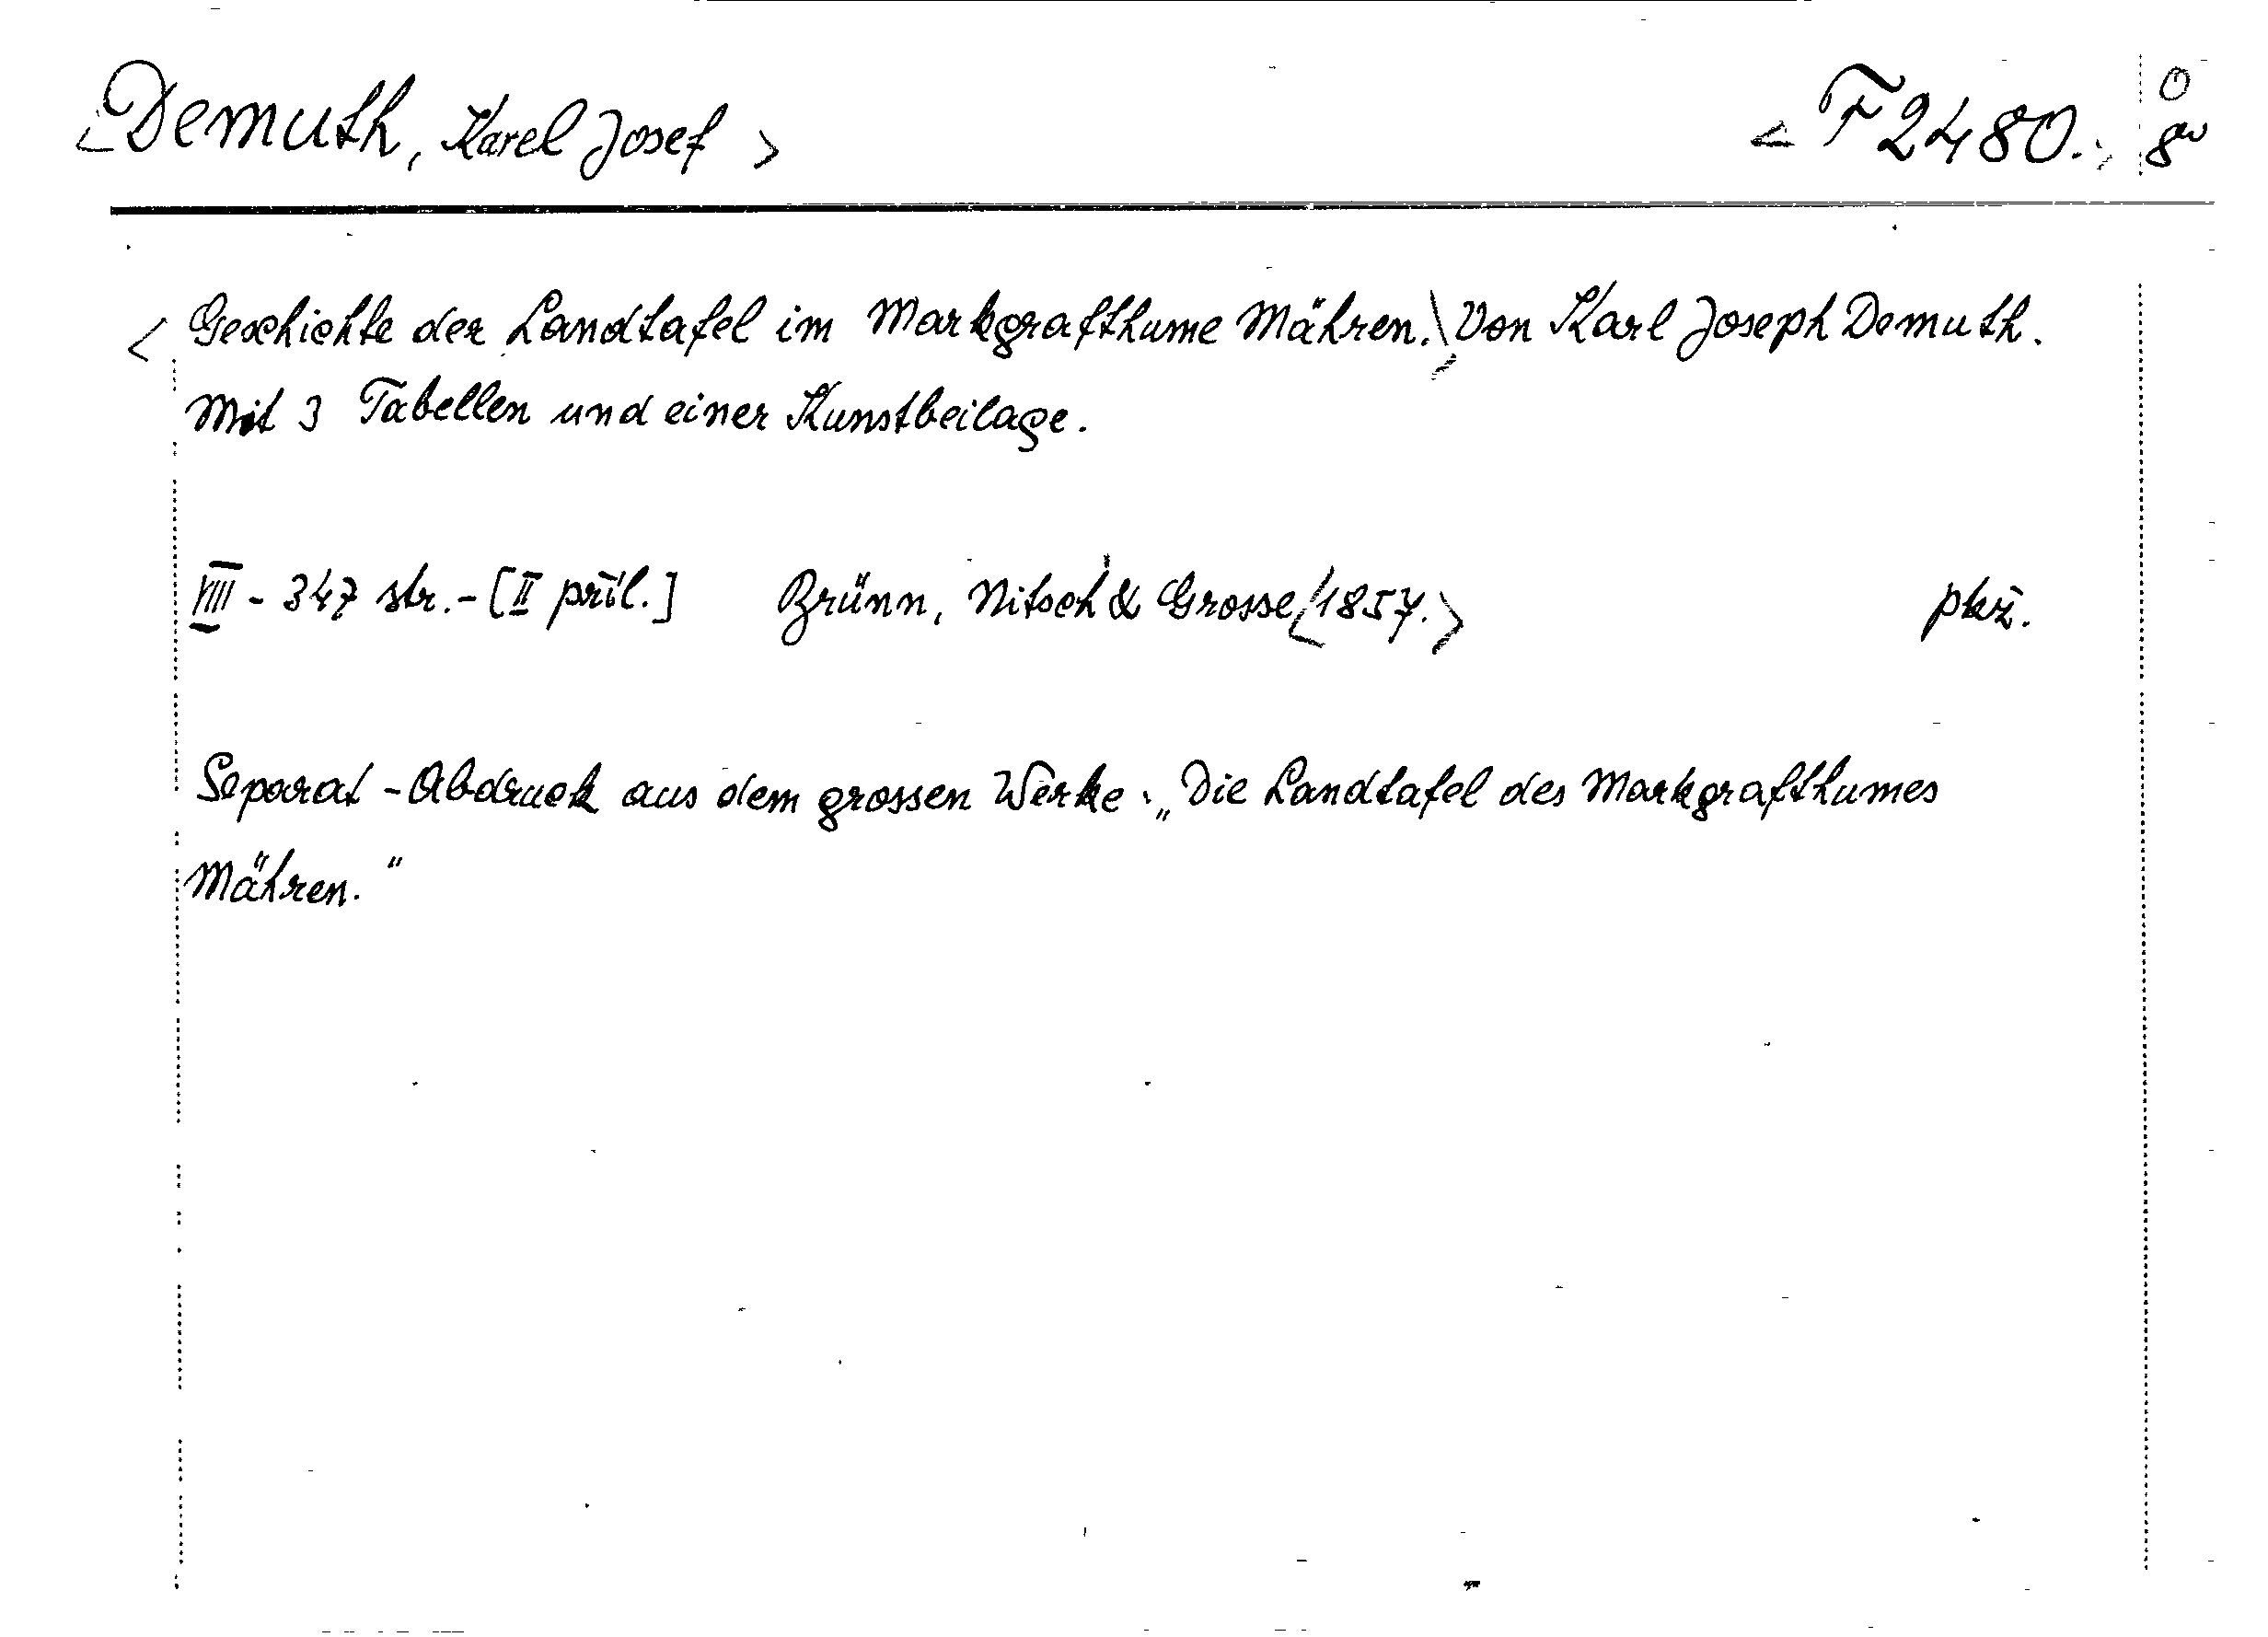 <Demuth, Karel Josef> <F 2480.> 0 8°
<Geschichte der Landtafel im Markgrafthume Mähren.> Von Karl Joseph Demuth.
Mit 3 Tabellen und einer Kunstbeilage.
VIII - 347 str. - [II příl.] Brünn, Nitsch & Grosse <1857.> pkž.
Separat - Abdruck aus dem grossen Werke: „Die Landtafel des Markgrafthumes
Mähren."